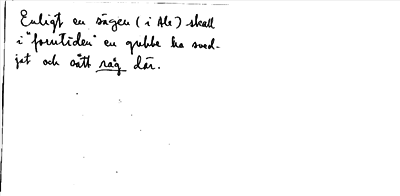 Enligt en sägen (i Ale) skall
i "forntiden" en gubbe ha sved-
jat och sått råg där.